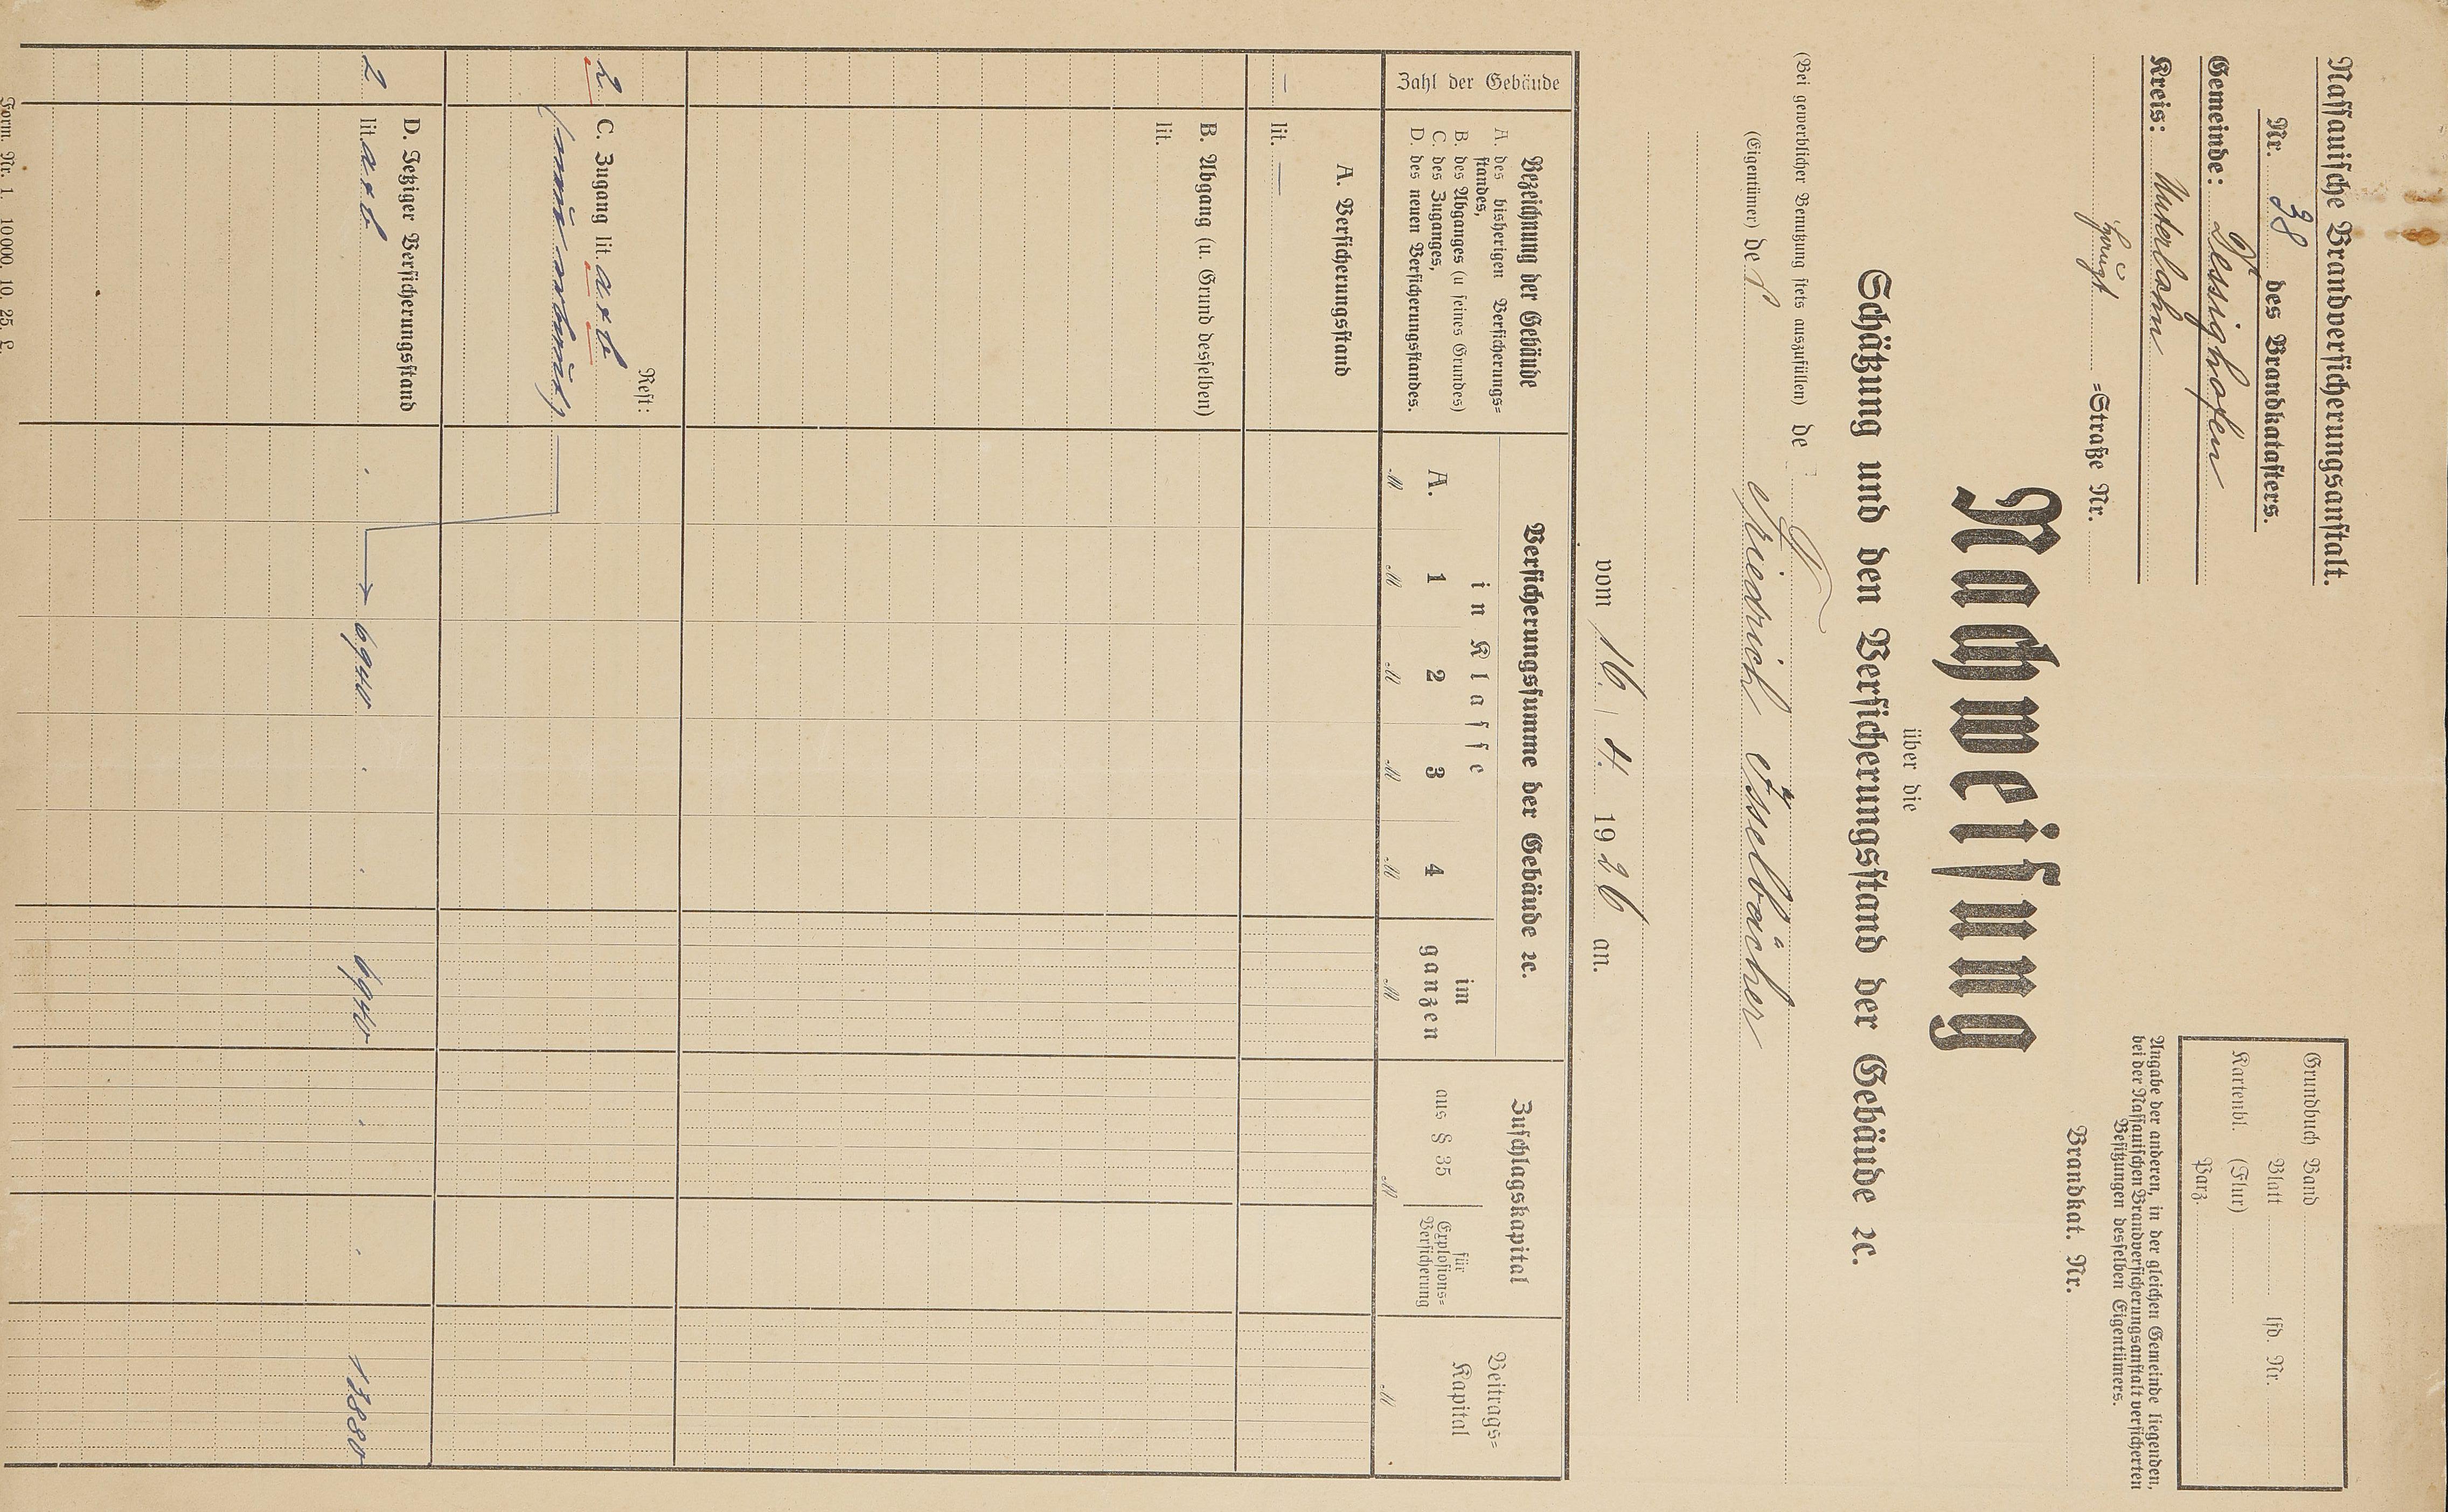 Nassauische Brandversicherungsanstalt.
Nr. 38 des Brandkatasters.
Gemeinde: Dessighofen
Kreis: Unterlahn
=Straße Nr.
Grundbuch Band
Blatt lfd. Nr.
Kartenbl. (Flur)
Parz.
Angabe der anderen, in der gleichen Gemeinde liegenden,
bei der Nassauischen Brandversicherungsanstalt versicherten
Besitzungen desselben Eigentümers.
Brandkat. Nr.
Nachweisung
über die
Schätzung und den Versicherungsstand der Gebäude ꝛc.
(Bei gewerblicher Benutzung stets auszufüllen) de
(Eigentümer) des Friedrich Esselbächer
vom 16. 4. 1926 an.
Zahl der Gebäude
Bezeichnung der Gebäude
A. des bisherigen Versicherungs=
standes,
B. des Abganges (u seines Grundes)
C. des Zuganges,
D. des neuen Versicherungsstandes.
Versicherungssumme der Gebäude ꝛc.
in Klasse
A. 1 2 3 4
im
ganzen
ℳ ℳ ℳ ℳ ℳ ℳ
Zuschlagskapital
aus § 35
ℳ
für
Explosions=
Versicherung
Beitrags=
Kapital
ℳ
A. Versicherungsstand
— lit. —
B. Abgang (u. Grund desselben)
lit.
Rest:
2 C. Zugang lit. a & b
D. Jetziger Versicherungsstand
2 lit. a & b . 6940 . . 6940 . . 13880
Form. Nr. 1. 10 000. 10. 25. L.